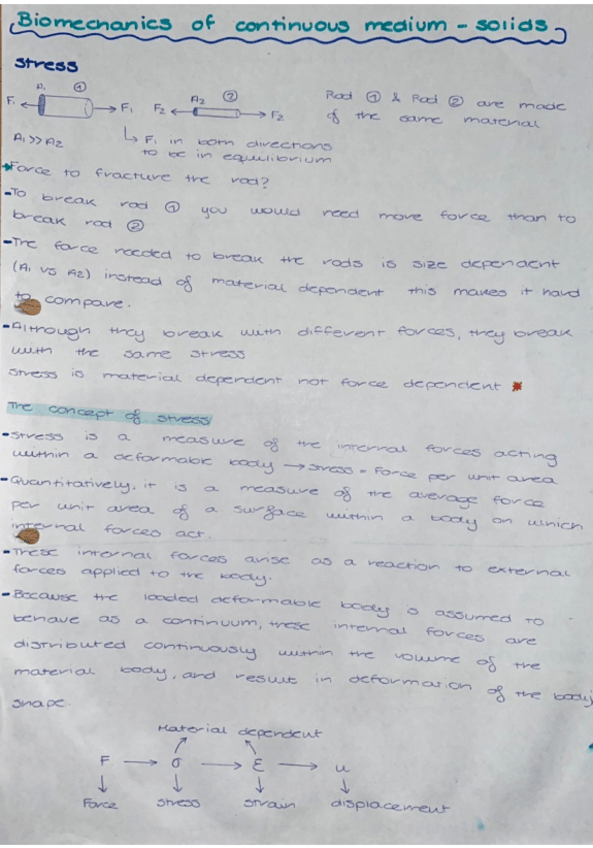 Biomechanics of continuous medium - solids
Stress
A₁ ① A₂ ②
F₁ F₁ F₂ F₂
Rod ① & Rod ② are made
of the same material
A₁ >> A₂
↳ F₁ in both directions
to be in equilibrium
Force to fracture the rod?
-To break rod ① you would need more force than to
break rod ②
-The force needed to break the rods is size dependent
(A₁ vs A₂) instead of material dependent this makes it hard
to compare.
-Although they break with different forces, they break
with the same stress
Stress is material dependent not force dependent *
The concept of stress
-Stress is a measure of the internal forces acting
within a deformable body → stress = force per unit area
-Quantitatively, it is a measure of the average force
per unit area of a surface within a body on which
internal forces act.
-These internal forces arise as a reaction to external
forces applied to the body.
-Because the loaded deformable body is assumed to
behave as a continuum, these internal forces are
distributed continuously within the volume of the
material body, and result in deformation of the body
shape.
Material dependent
F → σ → ε → u
Force stress strain displacement